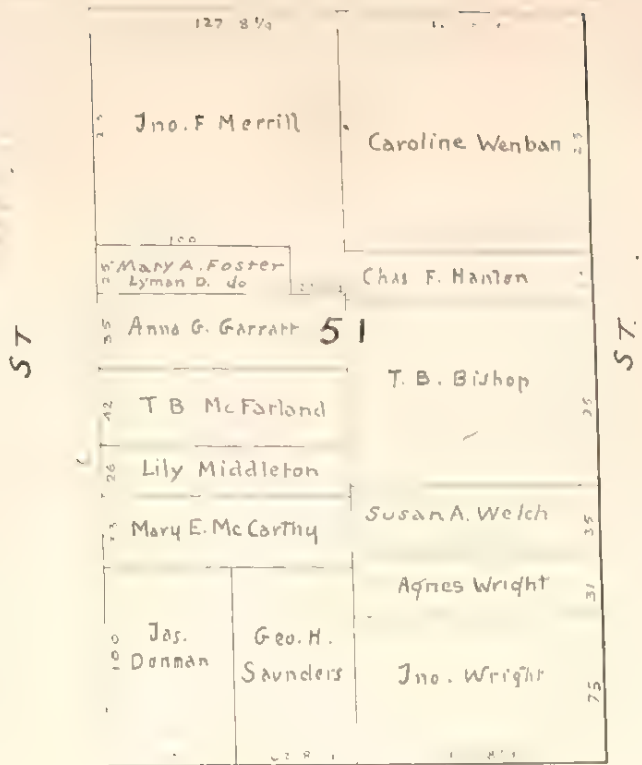 127 8 1/4
Jno. F Merrill
Caroline Wenban
25
100
Mary A. Foster
Lyman D. do
Chas F. Hanlon
Anna G. Garratt
35
51
T. B. Bishop
ST
ST.
T B McFarland
42
Lily Middleton
26
Susan A. Welch
35
Mary E. McCarthy
23
Agnes Wright
31
Jas.
Donman
100
Geo. H.
Saunders
Jno. Wright
75